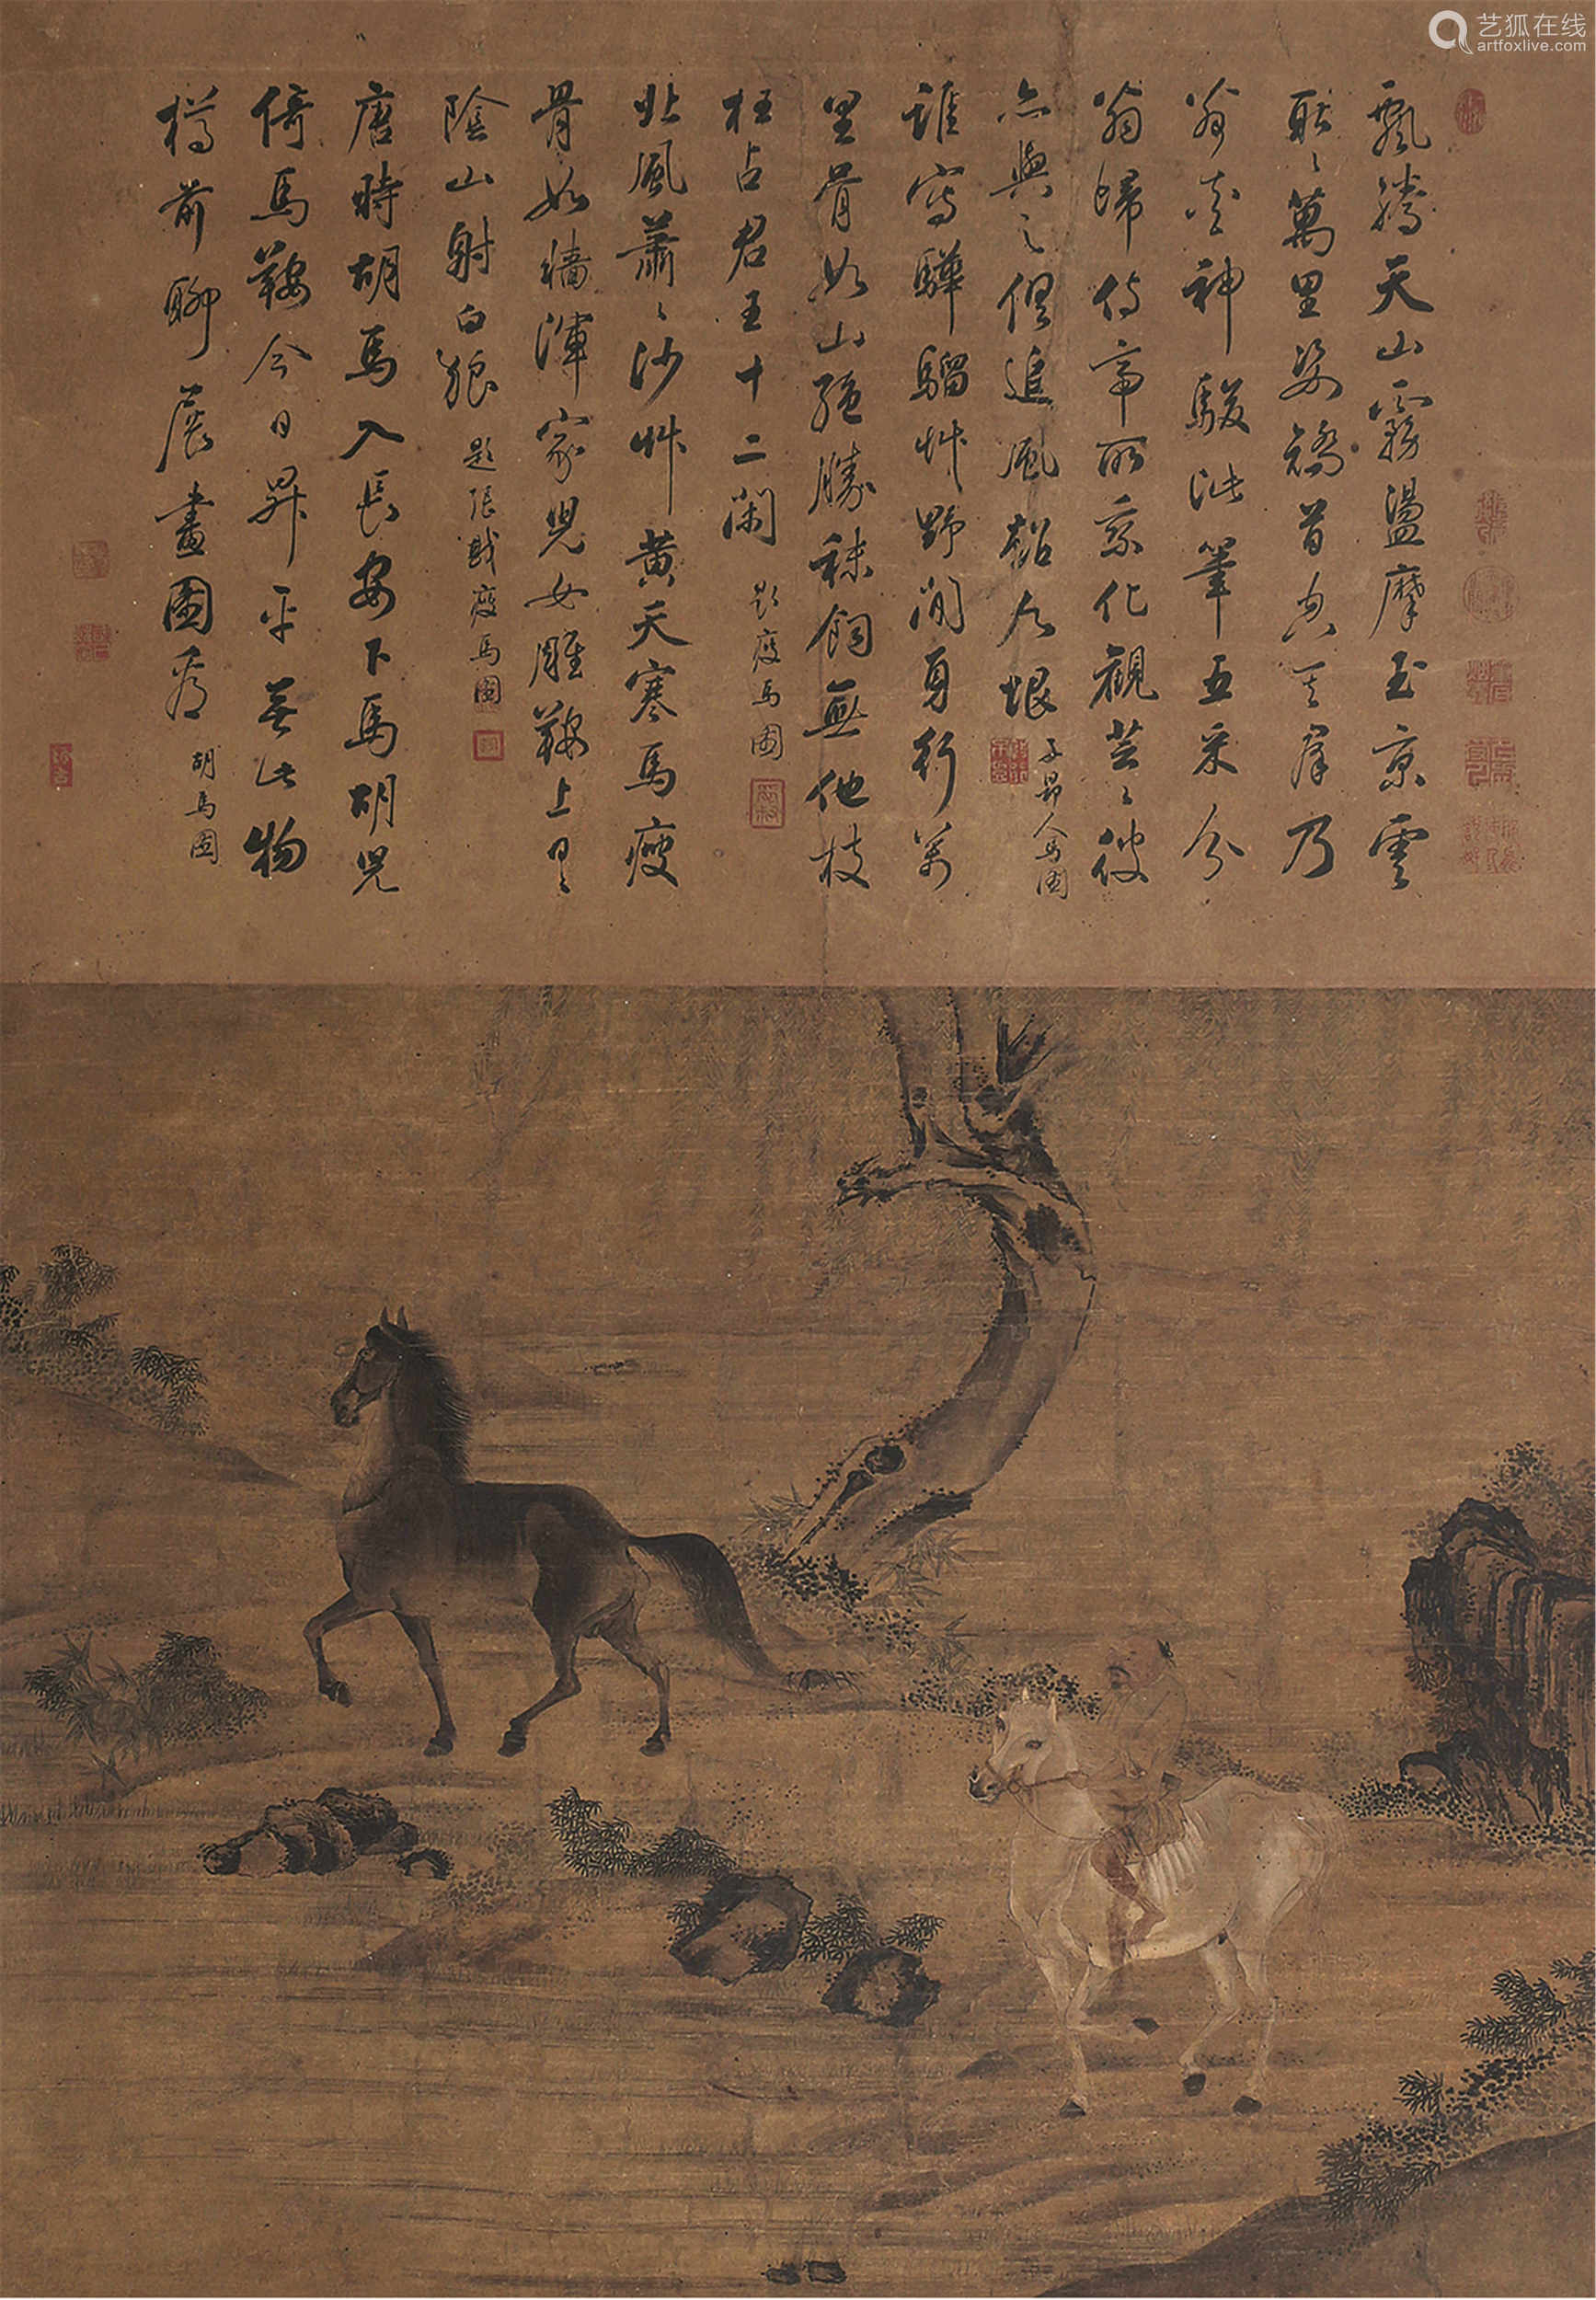 艺狐在线
artfoxlive.com
飄騰天山霧盪摩玉京雲
耽〻萬里姿矯首空其羣乃
翁神駿泚筆五采分
翁歸侍帝所乘化觀芸〻彼
亦與之俱追風超八垠 子昂人馬圖
誰寫驊騮艸野間身行萬
里骨如山絕勝秣飼無他枝
枉占君王十二閑 題瘦馬圖
北風蕭〻沙艸黃天寒馬瘦
骨如墻渾家兒女雕鞍上日〻
陰山射白狼 題張戡瘦馬圖
唐時胡馬入長安下馬胡兒
倚馬鞍今日昇平無此物
樽前聊展畫圖看 胡馬圖